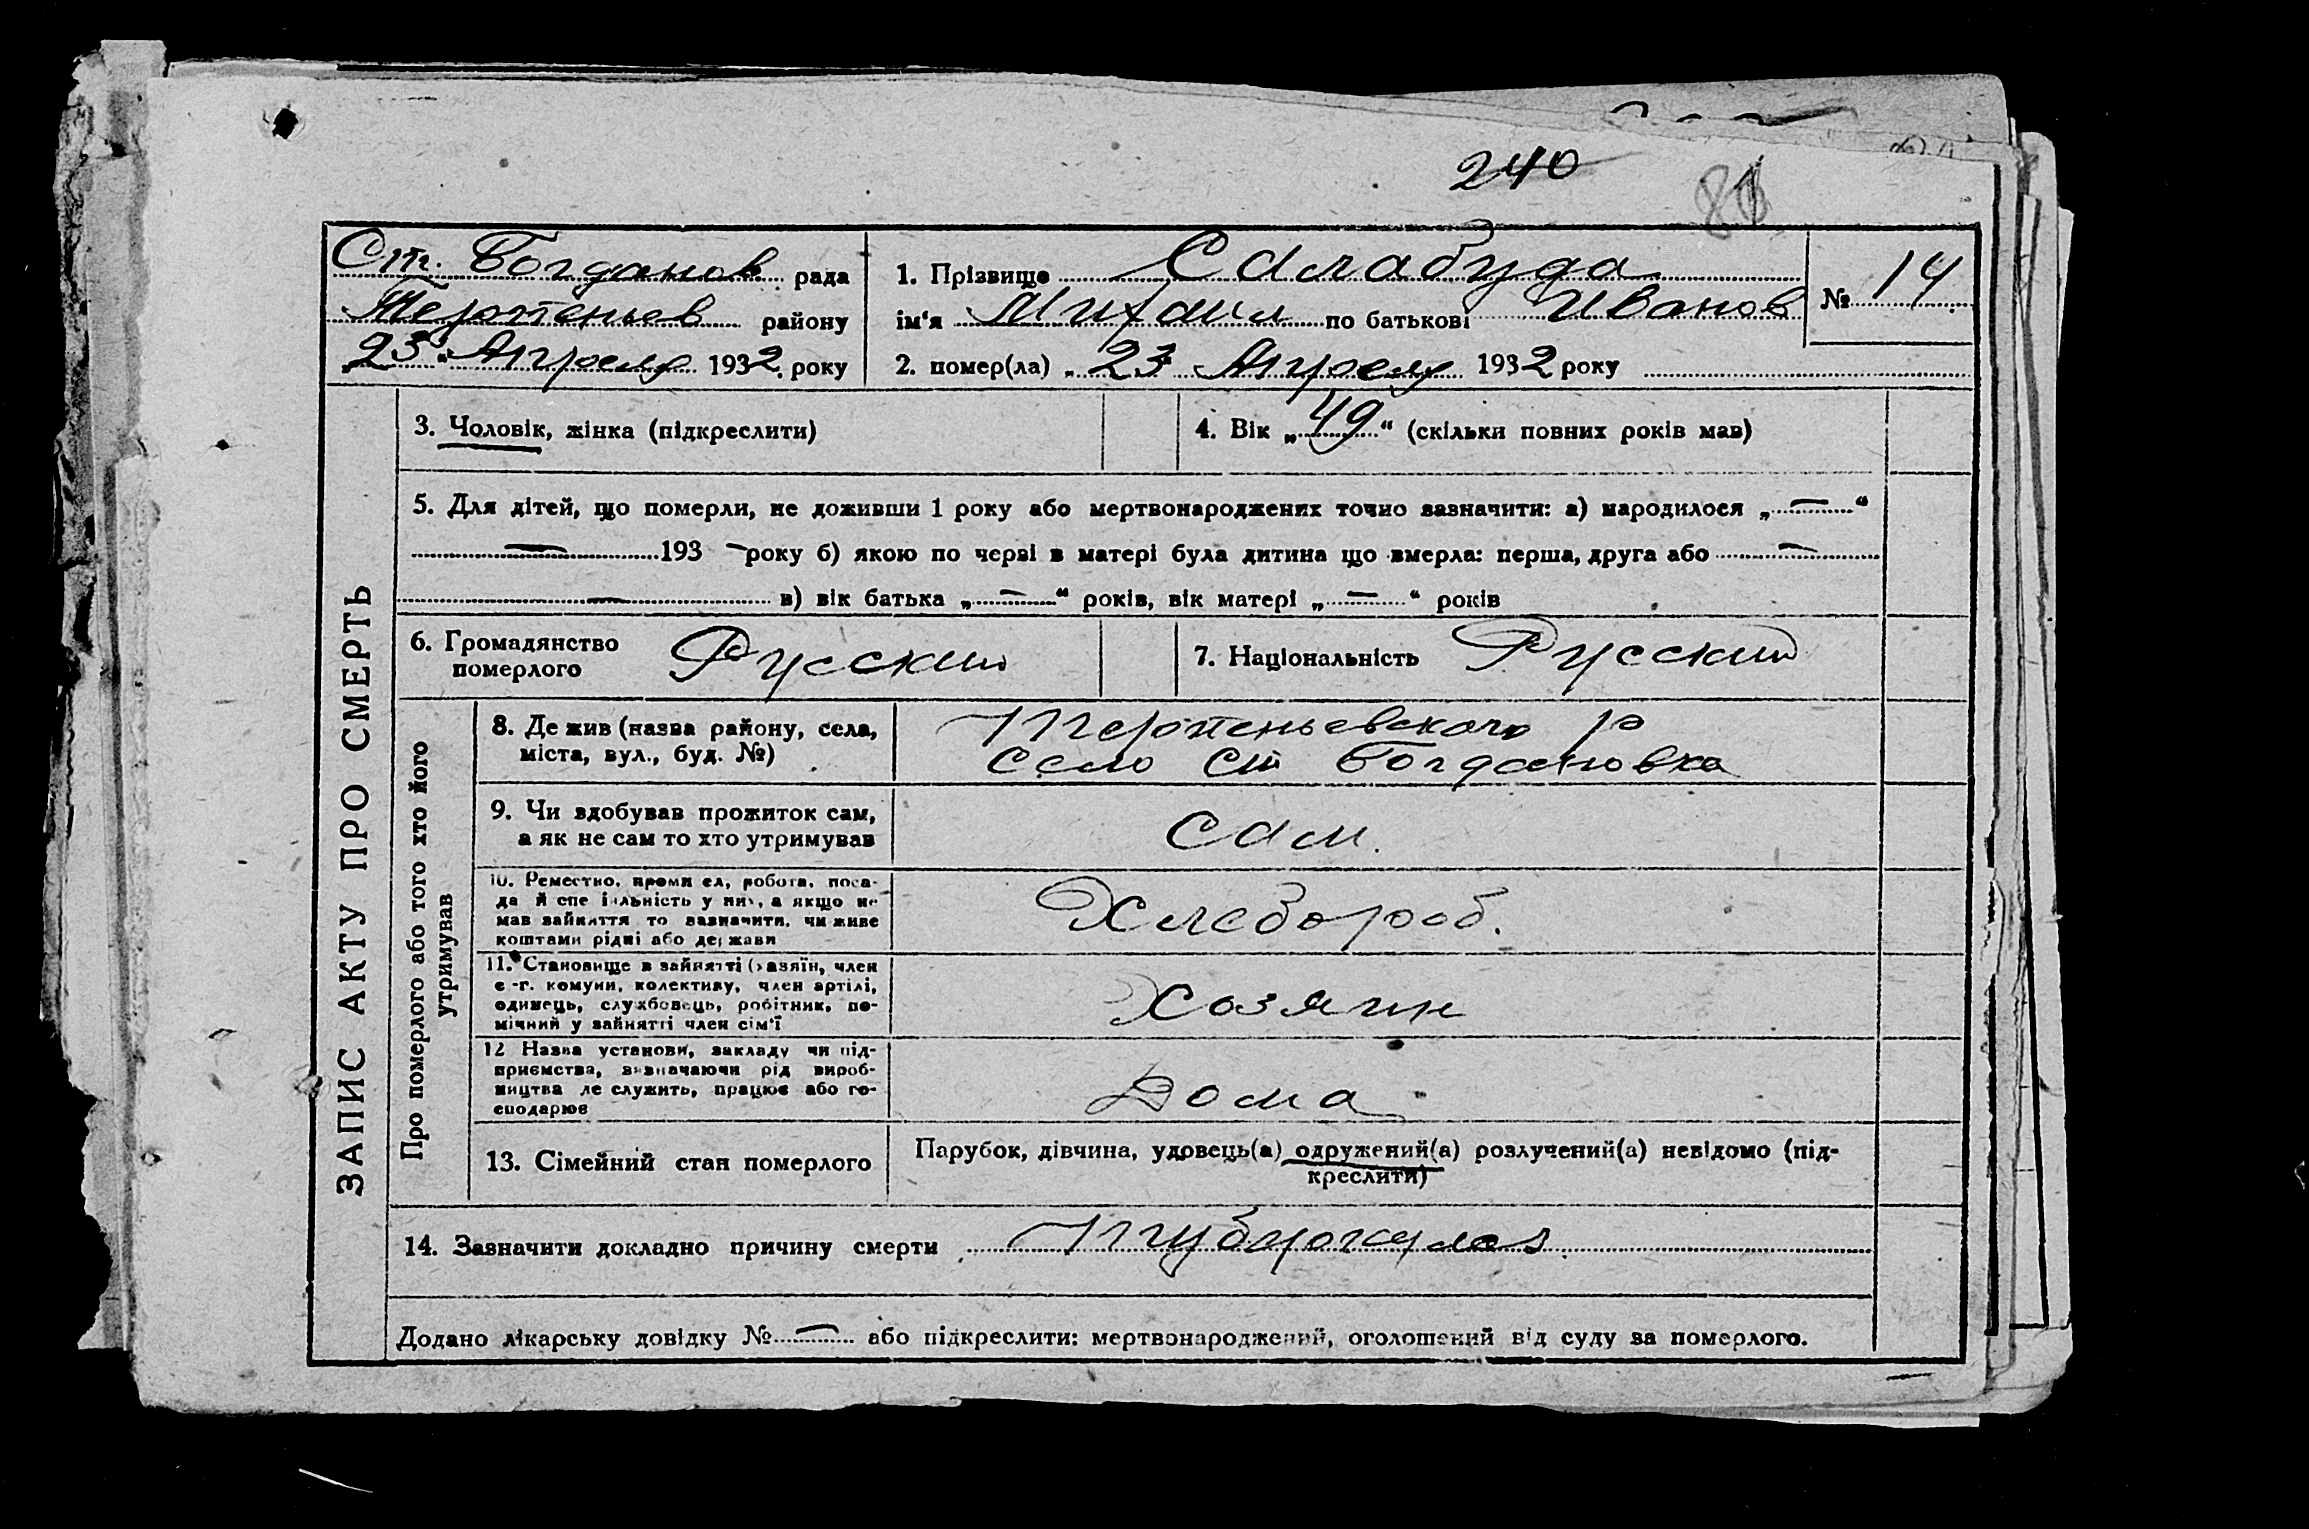 240
81
Ст. Богданов рада
Терпеньев району
"23" Апреля 1932 року
1. Прізвище Салабуда
ім'я Михаил по батькові Иванов
№ 14
2. помер(ла) „23 Апреля 1932 року
ЗАПИС АКТУ ПРО СМЕРТЬ
3. Чоловік, жінка (підкреслити)
4. Вік „49" (скільки повних років мав)
5. Для дітей, що померли, не доживши 1 року або мертвонароджених точно зазначити: а) народилося „—"
— 193 — року б) якою по черзі в матері була дитина що вмерла: перша, друга або —
— в) вік батька „—" років, вік матері „—" років
6. Громадянство
померлого
Русский
7. Національність Русский
Про померлого або того хто його
утримував
8. Де жив (назва району, села,
міста, вул., буд. №)
Терпеньевского р
село Ст Богдановка
9. Чи здобував прожиток сам,
а як не сам то хто утримував
Сам.
10. Реместно, промисел, робота, поса-
да й спеціяльність у них, а якщо не
мав зайняття то зазначити, чи живе
коштами рідні або держави
Хлебороб.
11. Становище в зайнятті (хазяїн, член
с.-г. комуни, колективу, член артілі,
одинець, службовець, робітник, по-
мічний у зайнятті член сім'ї
Хозяин
12 Назва установи, закладу чи під-
приємства, визначаючи рід вироб-
ництва де служить, працює або го-
сподарює
Дома
13. Сімейний стан померлого
Парубок, дівчина, удовець(а) одружений(а) розлучений(а) невідомо (під-
креслити)
14. Зазначити докладно причину смерти Тубэркулоз
Додано лікарську довідку № — або підкреслити: мертвонароджений, оголошений від суду за померлого.